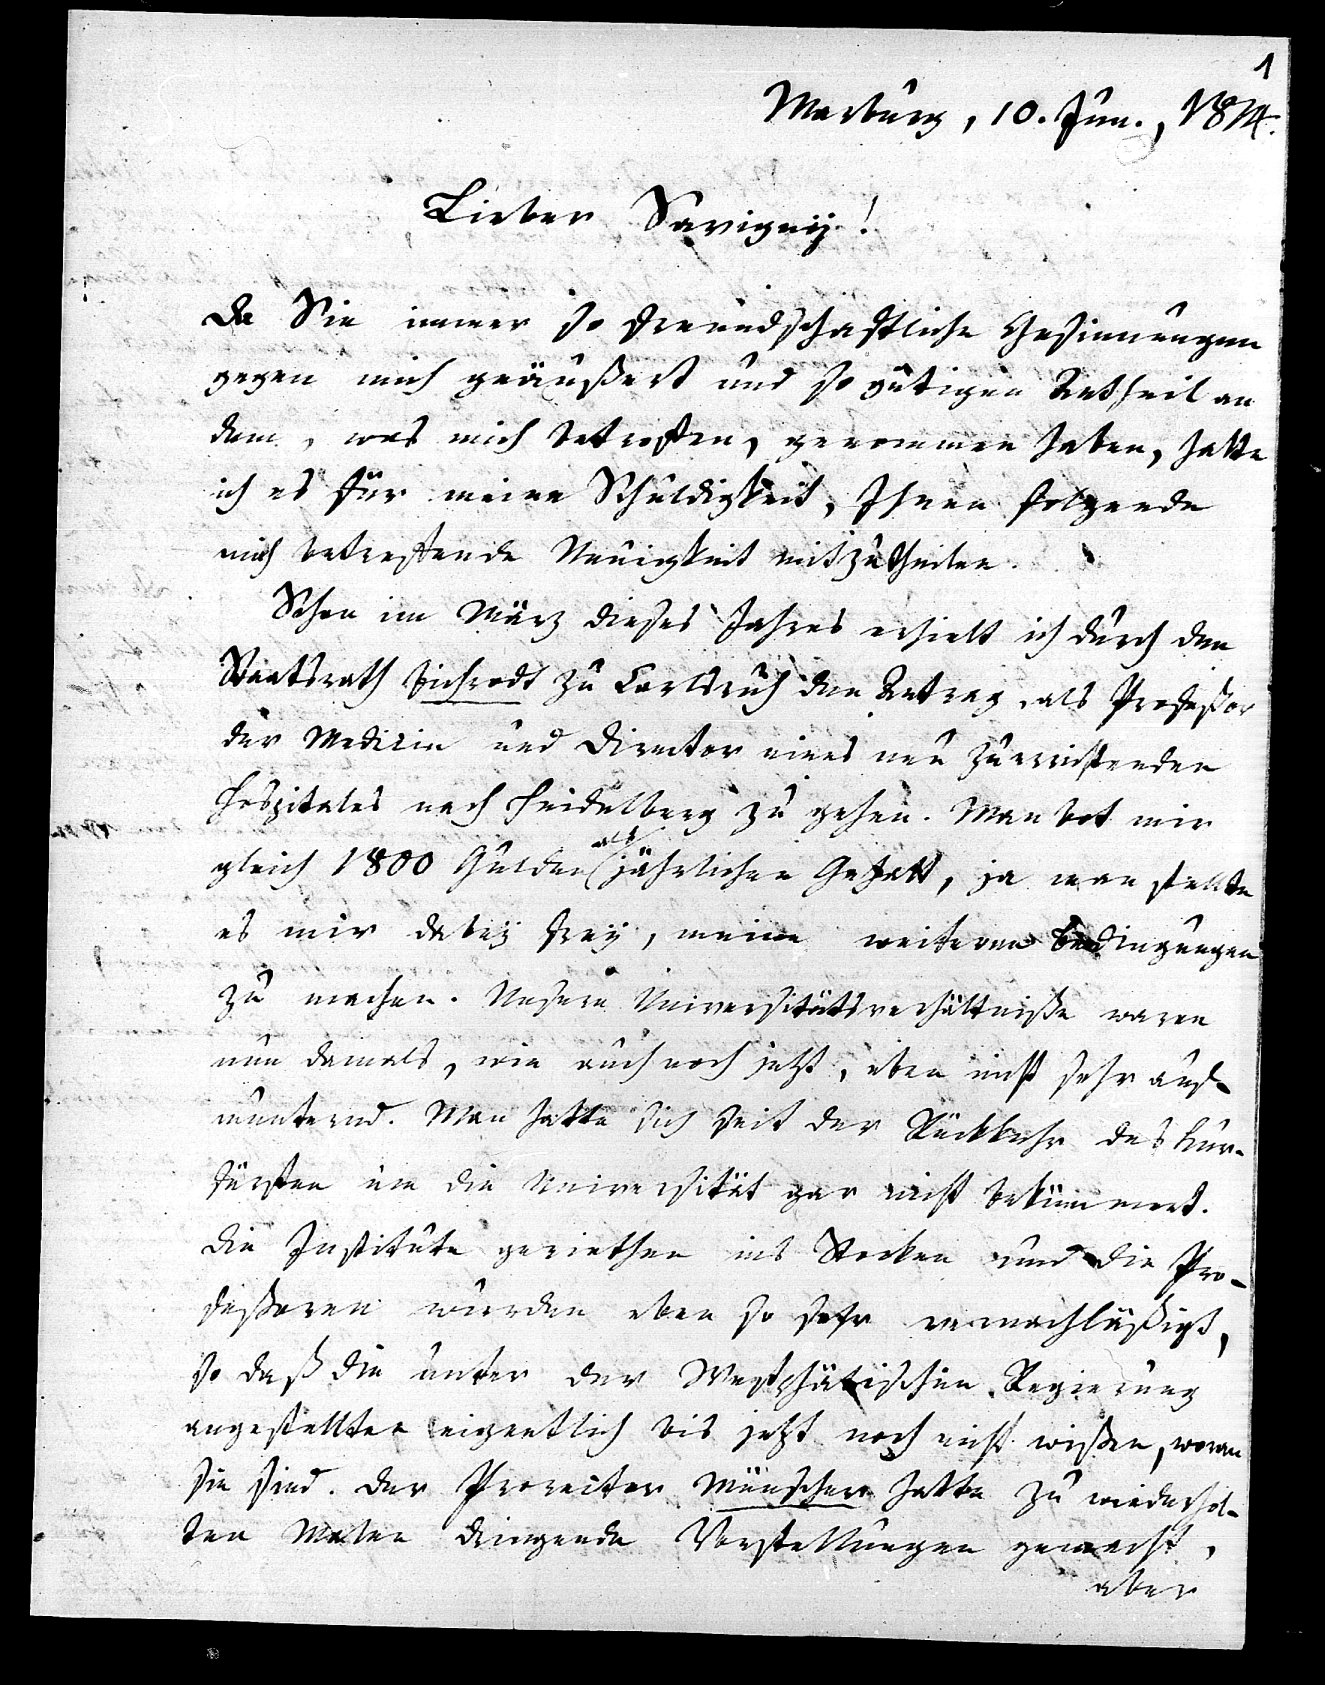 1
Marburg, 10. Jun., 1814.
Lieber Savigny!
Da Sie immer so freundschaftliche Gesinnungen
gegen mich geäußert und so gütigen Antheil an
dem, was mich betroffen, genommen haben, halte
ich es für meine Schuldigkeit, Ihnen folgende
mich betreffende Neuigkeit mitzutheilen.
Schon im März dieses Jahres erhielt ich durch den
Staatsrath Eichrodt zu Carlsruh den Antrag, als Profeßor
der Medicin und Director eines neu zuerrichtenden
Hospitales nach Heidelberg zu gehen. Man bot mir
gleich 1800 Gulden als jährlichen Gehalt, ja man stellte
es mir dabey frey, meine weiteren Bedingungen
zu machen. Unsere Universitätsverhältniße waren
nun damals, wie auch noch jetzt, eben nicht sehr auf-
munternd. Man hatte sich seit der Rückkehr des Kur-
fürsten um die Universität gar nicht bekümmert.
Die Institute geriethen ins Stocken und die Pro-
feßoren wurden eben so sehr vernachläßigt,
so daß die unter der Westphälischen Regierung
angestellten eigentlich bis jetzt noch nicht wißen, woran
sie sind. Der Prorector Münscher hatte zu wiederhol-
ten Malen dringende Vorstellungen gemacht,
aber